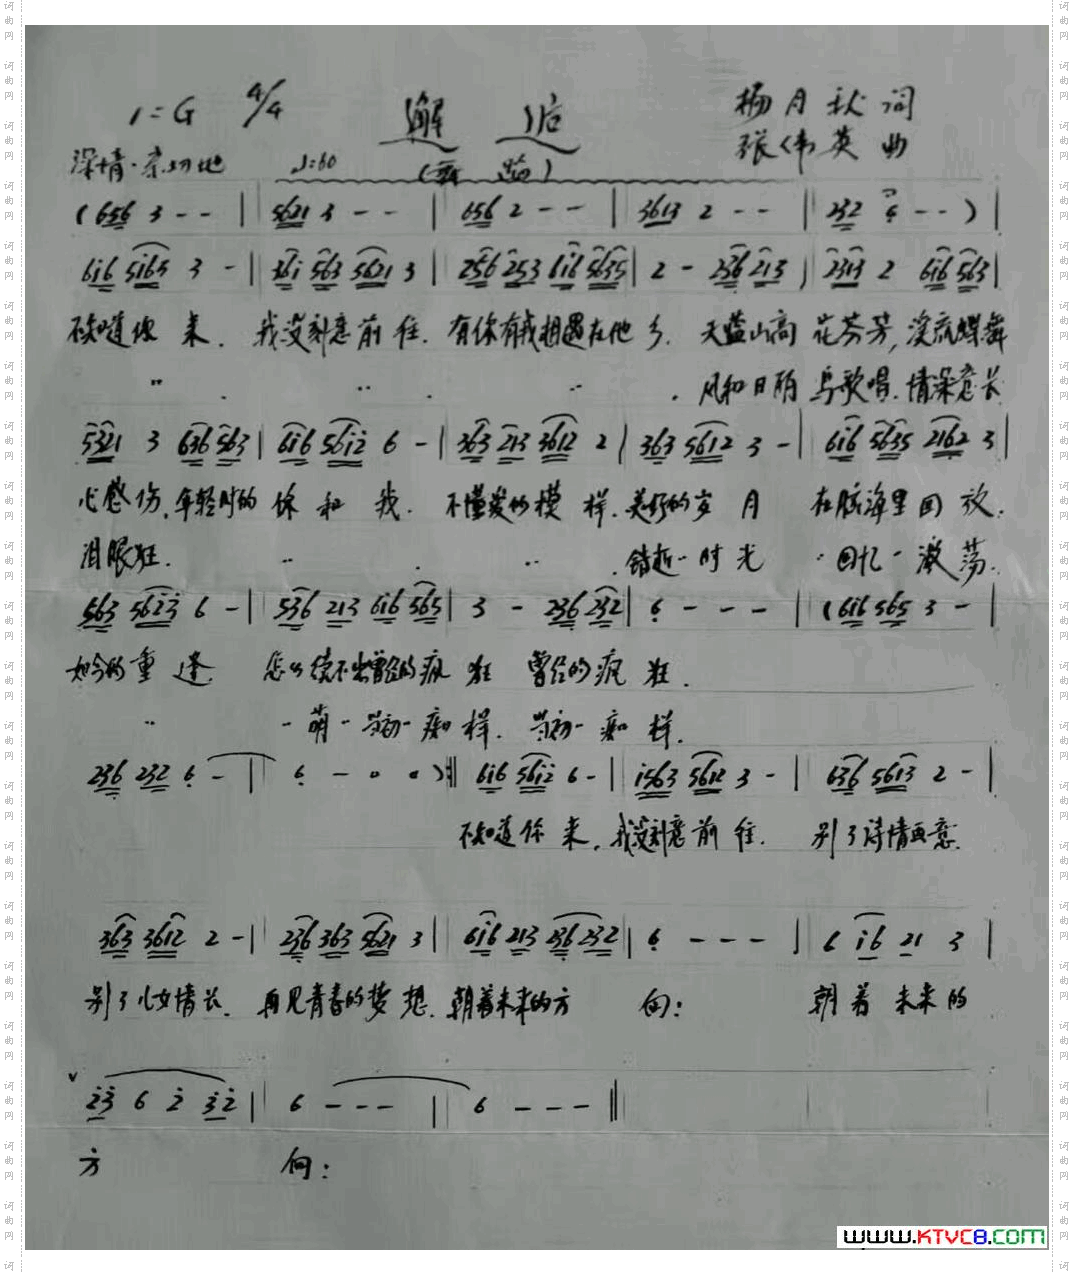 1=G 4/4 邂 逅 杨月秋 词
张伟英 曲
深情·亲切地 ♩=60
(656 3 - - | 5621 3 - - | 656 2 - - | 3613 2 - - | 232 6 - - ) |
616 5165 3 - | 361 563 5621 3 | 256 253 616 5635 | 2 - 236 213 | 2313 2 616 563 |
不知道你 来. 我没刻意前 往. 有你有我相遇在他 乡. 天蓝山高 花芬芳,
风和日丽 鸟歌唱. 情深意长
5321 3 636 563 | 616 5612 6 - | 363 213 3612 2 | 363 5612 3 - | 616 5635 2162 3 |
心感伤.年轻时的 你 和 我. 不懂爱的模 样.美好的岁 月 在脑海里回 放.
泪眼狂. 时 光 回忆 激 荡.
563 5623 6 - | 536 213 616 565 | 3 - 236 232 | 6 - - - | (616 565 3 - |
如今的重 逢. 曾经的疯 狂 曾经的疯 狂.
236 232 6 - | 6 - 0 0 ) :‖ 616 5612 6 - | 1563 5612 3 - | 636 5613 2 - |
不知道你 来. 我没刻意前 往. 别了诗情画意.
363 3612 2 - | 236 363 5621 3 | 616 213 236 232 | 6 - - - | 6 16 21 3 |
别了儿女情长. 再见青春的梦 想. 朝着未来的方 向: 朝 着 未来 的
∨ 23 6 2 32 | 6 - - - | 6 - - - ‖
方 向:
www.KTVC8.com
词曲网